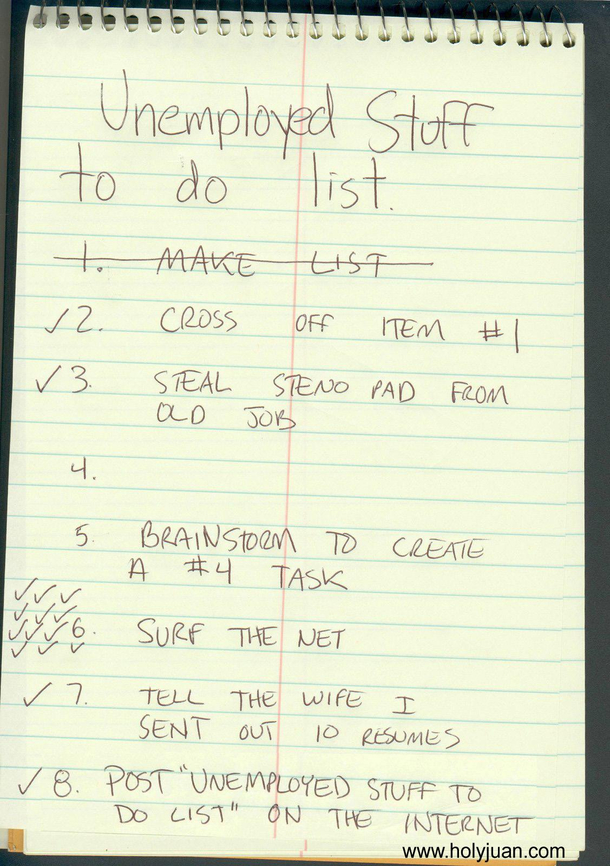 Unemployed Stuff
to do list.
1. MAKE LIST
✓ 2. CROSS OFF ITEM #1
✓ 3. STEAL STENO PAD FROM
OLD JOB
4.
5. BRAINSTORM TO CREATE
A #4 TASK
✓✓✓
✓✓✓
✓✓✓ 6. SURF THE NET
✓✓✓
✓ 7. TELL THE WIFE I
SENT OUT 10 RESUMES
✓ 8. POST "UNEMPLOYED STUFF TO
DO LIST" ON THE INTERNET
www.holyjuan.com